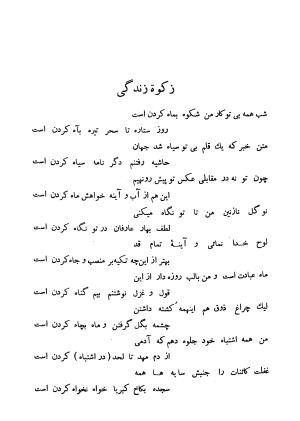 زکوة زندگی
شب همه بی تو کار من شکوه بماه کردن است
روز ستاره تا سحر تیره بآه کردن است
متن خبر که یك قلم بی تو سیاه شد جهان
حاشیه رفتنم دگر نامه سیاه کردن است
چون تو نه در مقابلی عکس تو پیش رو نهیم
این هم از آب و آینه خواهش ماه کردن است
نو گل نازنین من تا تو نگاه میکنی
لطف بهار عارفان در تو نگاه کردن است
لوح خدا نمائی و آینهٔ تمام قد
بهتر از این چه تکیه بر منصب و جاه کردن است
ماه عبادت است و من بالب روزه دار از این
قول و غزل نوشتنم بیم گناه کردن است
لیك چراغ ذوق هم اینهمه کشته داشتن
چشمه بگل گرفتن و ماه بچاه کردن است
من همه اشتباه خود جلوه دهم که آدمی
از دم مهد تا لحد (در اشتباه) کردن است
غفلت کائنات را جنبش سایه ها همه
سجده بکاخ کبریا خواه نخواه کردن است